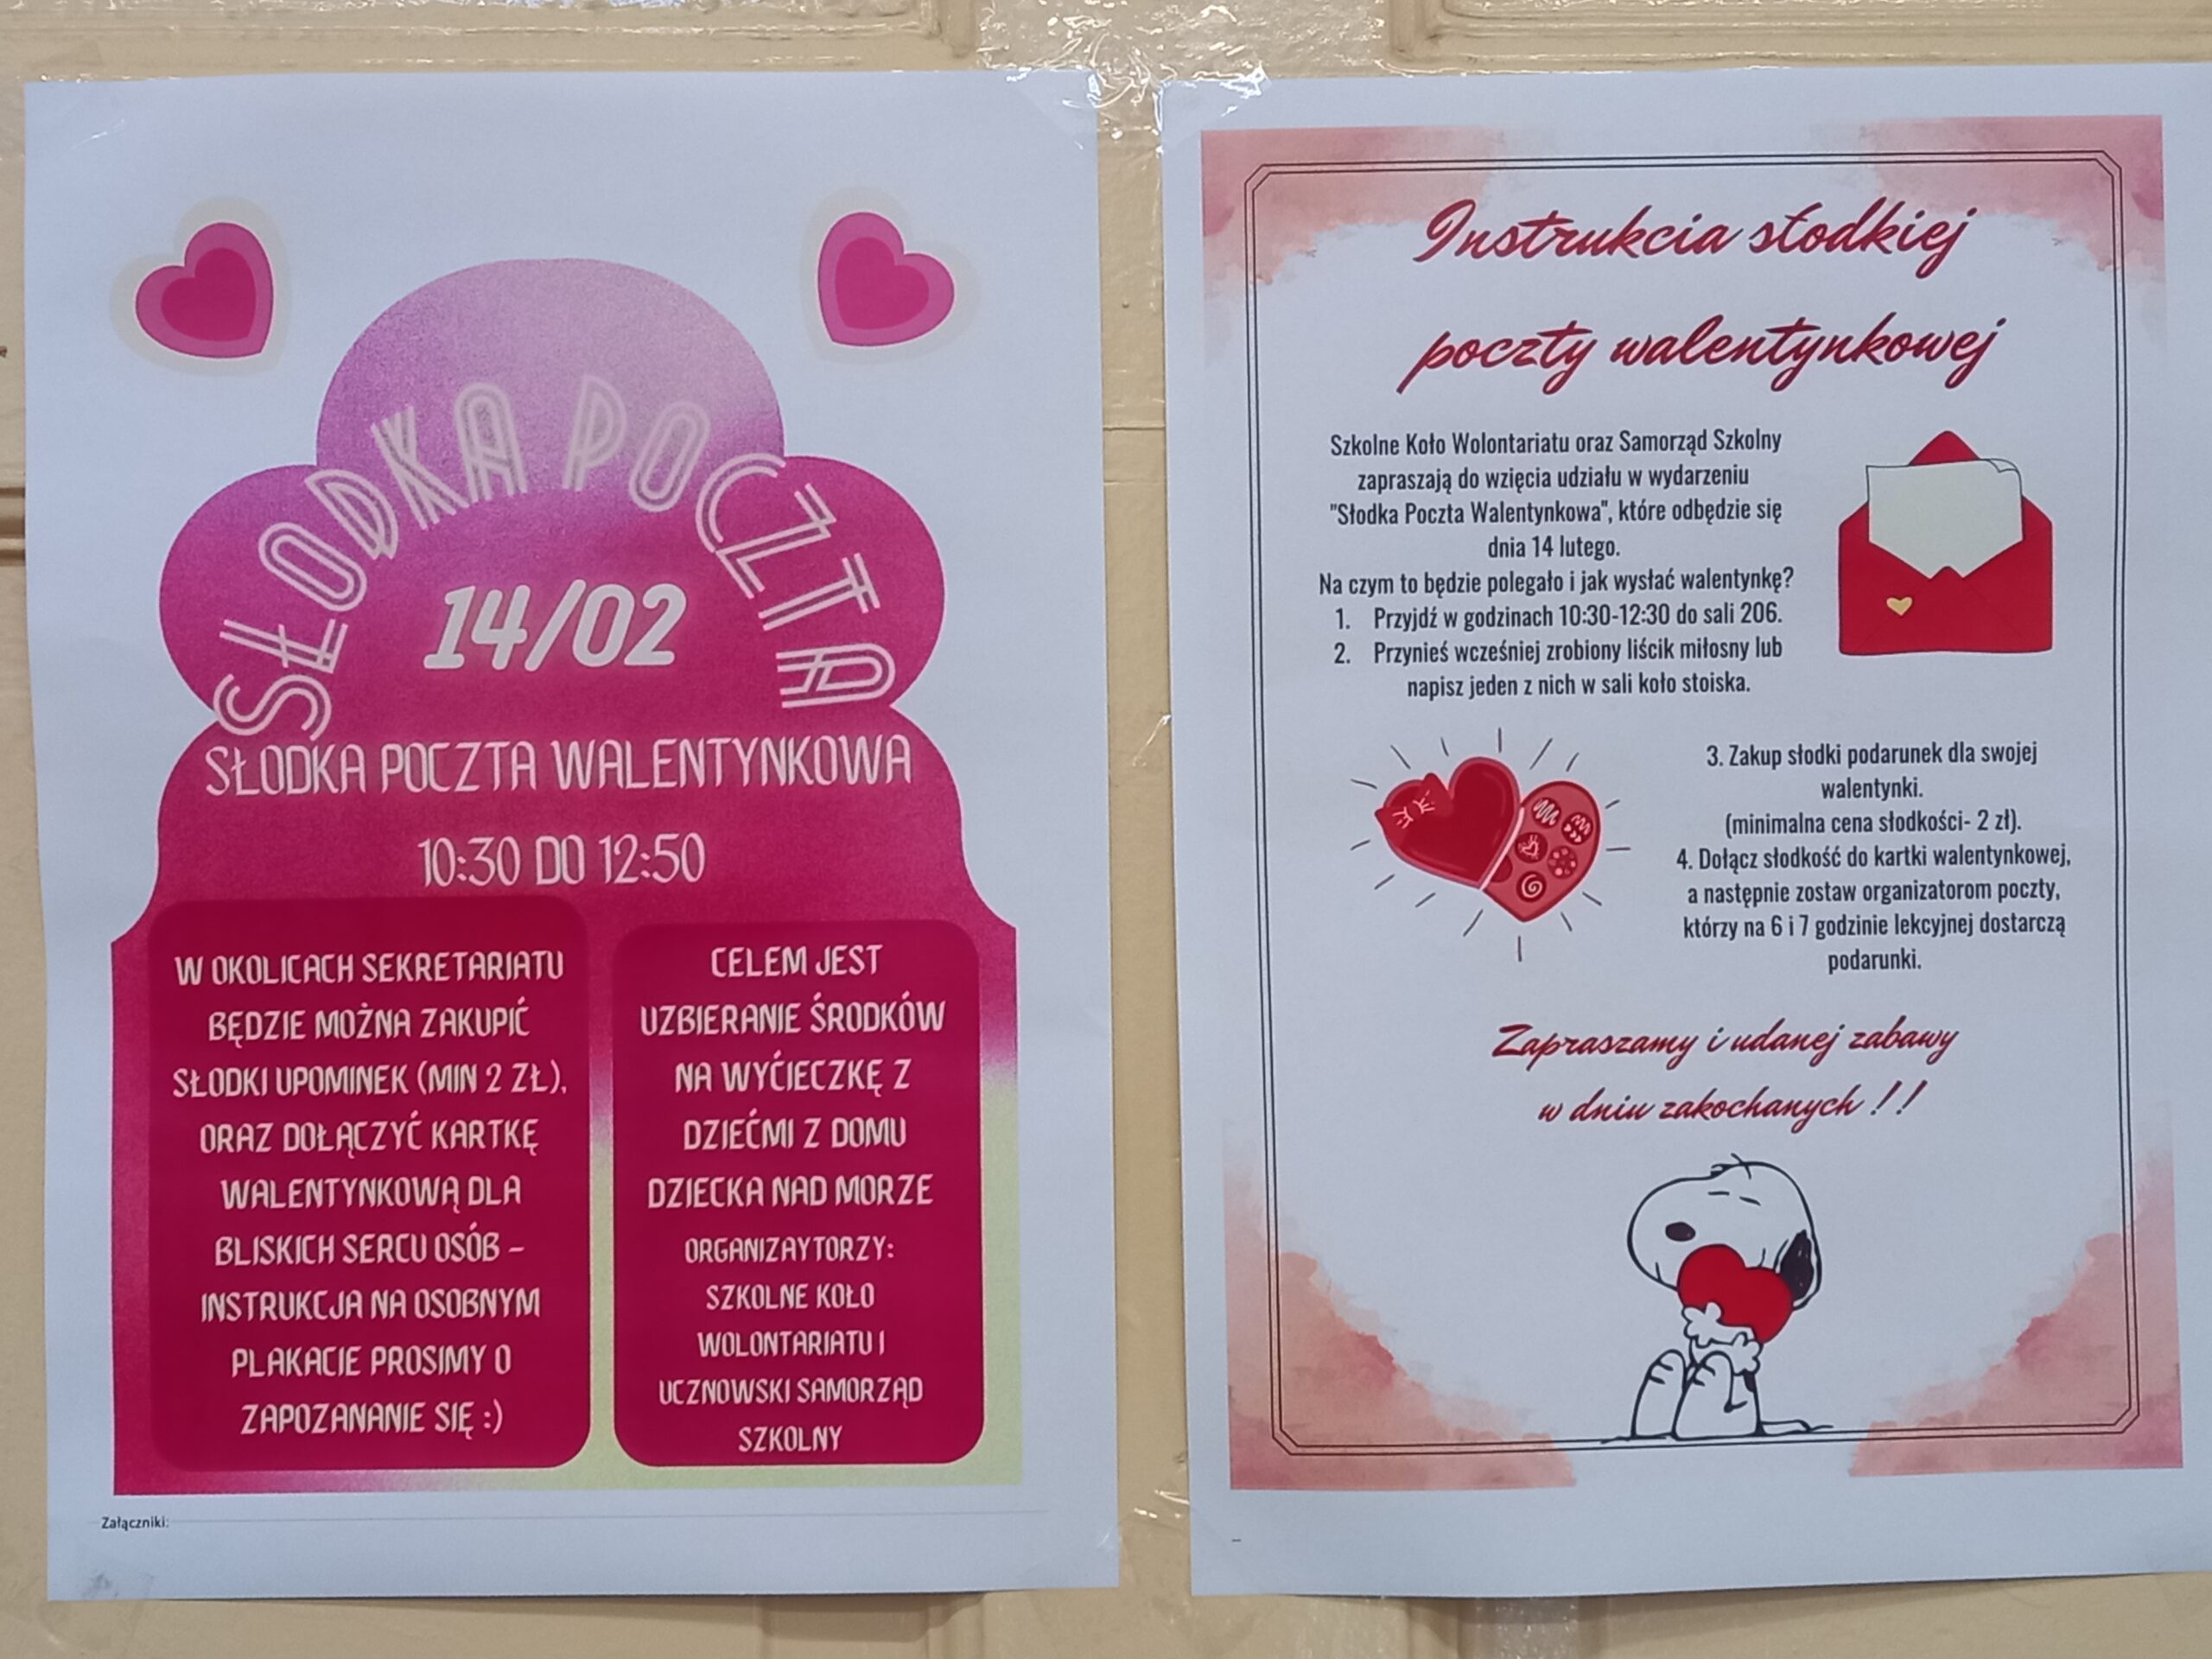 SŁODKA POCZTA
14/02
SŁODKA POCZTA WALENTYNKOWA
10:30 DO 12:50
W OKOLICACH SEKRETARIATU
BĘDZIE MOŻNA ZAKUPIĆ
SŁODKI UPOMINEK (MIN 2 ZŁ),
ORAZ DOŁĄCZYĆ KARTKĘ
WALENTYNKOWĄ DLA
BLISKICH SERCU OSÓB –
INSTRUKCJA NA OSOBNYM
PLAKACIE PROSIMY O
ZAPOZANANIE SIĘ :)
CELEM JEST
UZBIERANIE ŚRODKÓW
NA WYĆIECZKĘ Z
DZIEĆMI Z DOMU
DZIECKA NAD MORZE
ORGANIZAYTORZY:
SZKOLNE KOŁO
WOLONTARIATU I
UCZNOWSKI SAMORZĄD
SZKOLNY
Załączniki:
Instrukcia słodkiej
poczty walentynkowej
Szkolne Koło Wolontariatu oraz Samorząd Szkolny
zapraszają do wzięcia udziału w wydarzeniu
"Słodka Poczta Walentynkowa", które odbędzie się
dnia 14 lutego.
Na czym to będzie polegało i jak wysłać walentynkę?
1. Przyjdź w godzinach 10:30-12:30 do sali 206.
2. Przynieś wcześniej zrobiony liścik miłosny lub
napisz jeden z nich w sali koło stoiska.
3. Zakup słodki podarunek dla swojej
walentynki.
(minimalna cena słodkości- 2 zł).
4. Dołącz słodkość do kartki walentynkowej,
a następnie zostaw organizatorom poczty,
którzy na 6 i 7 godzinie lekcyjnej dostarczą
podarunki.
Zapraszamy i udanej zabawy
w dniu zakochanych !!